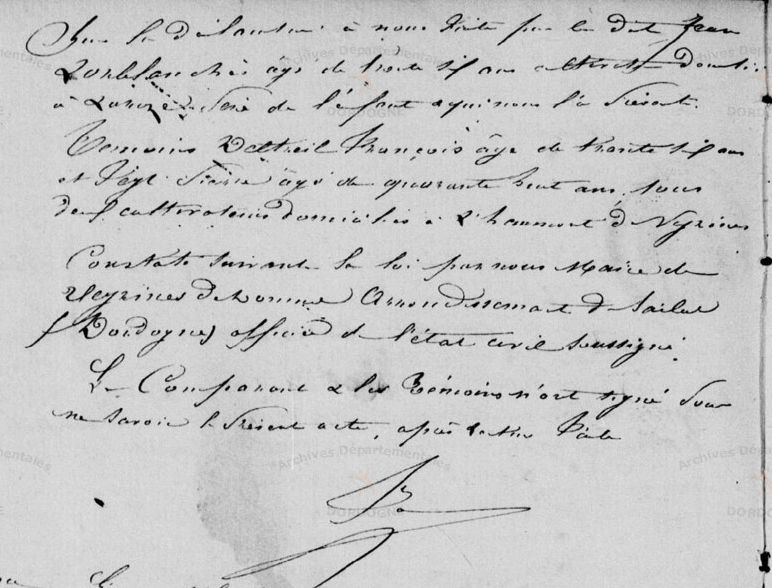 Sur la déclaration à nous faite par le dit Jean
âgé de trente six ans cultivateur
à père de l'enfant qui nous l'a présenté.
Témoins Delteil François âgé de trente six ans
et Pierre âgé de quarante huit ans, tous
deux cultivateurs domiciliés à Veyrines
Constaté suivant la loi par nous Maire de
Veyrines de Domme Arrondissement de Sarlat
(Dordogne) officier de l'état civil soussigné.
Le Comparant & les Témoins n'ont signé pour
ne savoir le présent acte, après lecture faite